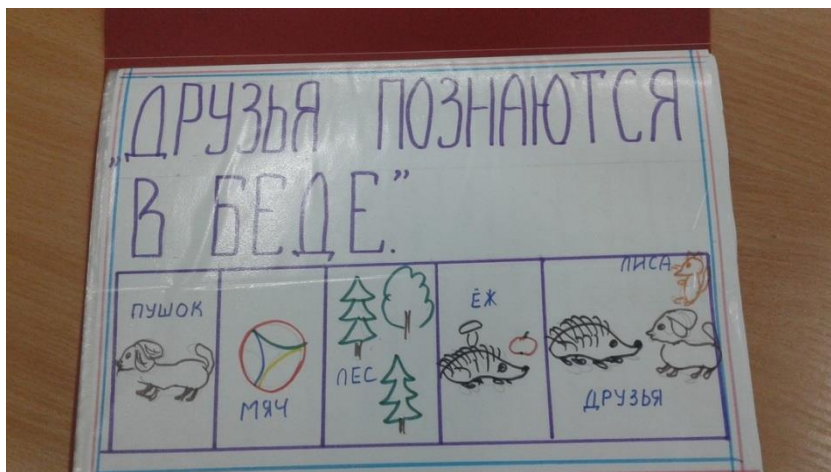 „ДРУЗЬЯ ПОЗНАЮТСЯ
В БЕДЕ."
ПУШОК
МЯЧ
ЛЕС
ЁЖ
ЛИСА
ДРУЗЬЯ